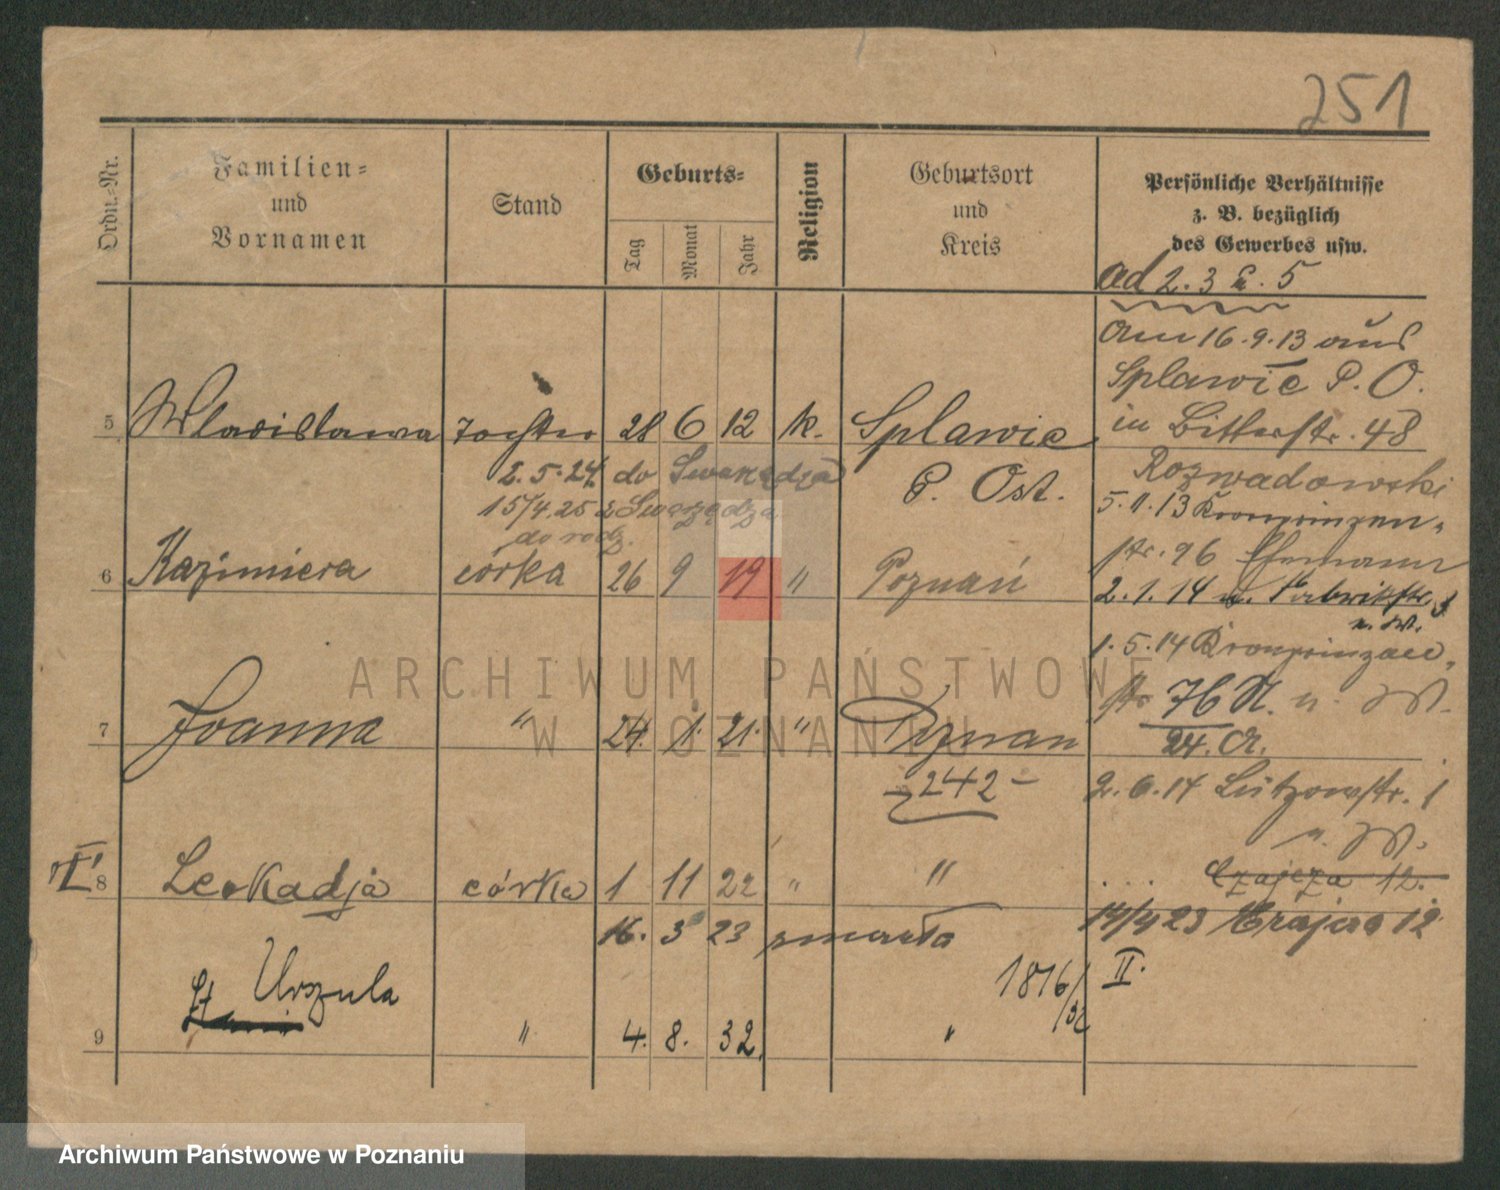 251
Ordn.-Nr.
Familien-
und
Vornamen
Stand
Geburts-
Tag
Monat
Jahr
Religion
Geburtsort
und
Kreis
Persönliche Verhältnisse
z. B. bezüglich
des Gewerbes usw.
ad 2. 3 u. 5
am 16.9.13 aus
Splawie P. O.
in Bitterstr. 48
Rozwadowski
5.11.13 Kronprinzen-
str. 96
2.1.14 Fabrikstr.
u. W.
1.5.14 Kronprinzen-
str 76 II. u. W.
24. A.
2.6.14 Lützowstr. 1
u. W.
Czajcza 12.
14/4 23 12
II.
5 Wladislawa Tochter 28 6 12 k. Splawie
P. Ost.
2.5.24 do Swarzędza
15/4.25 z Swarzędza
do rodz.
6 Kazimiera córka 26 9 19 " Poznań
7 Joanna " 24. 1. 21. " Poznan
- 242 -
8 Leokadja córka 1 11 22 " "
16. 3 23 zmarła
1816/32
Urszula
9 " 4. 8. 32. "
ARCHIWUM PAŃSTWOWE
W POZNANIU
Archiwum Państwowe w Poznaniu